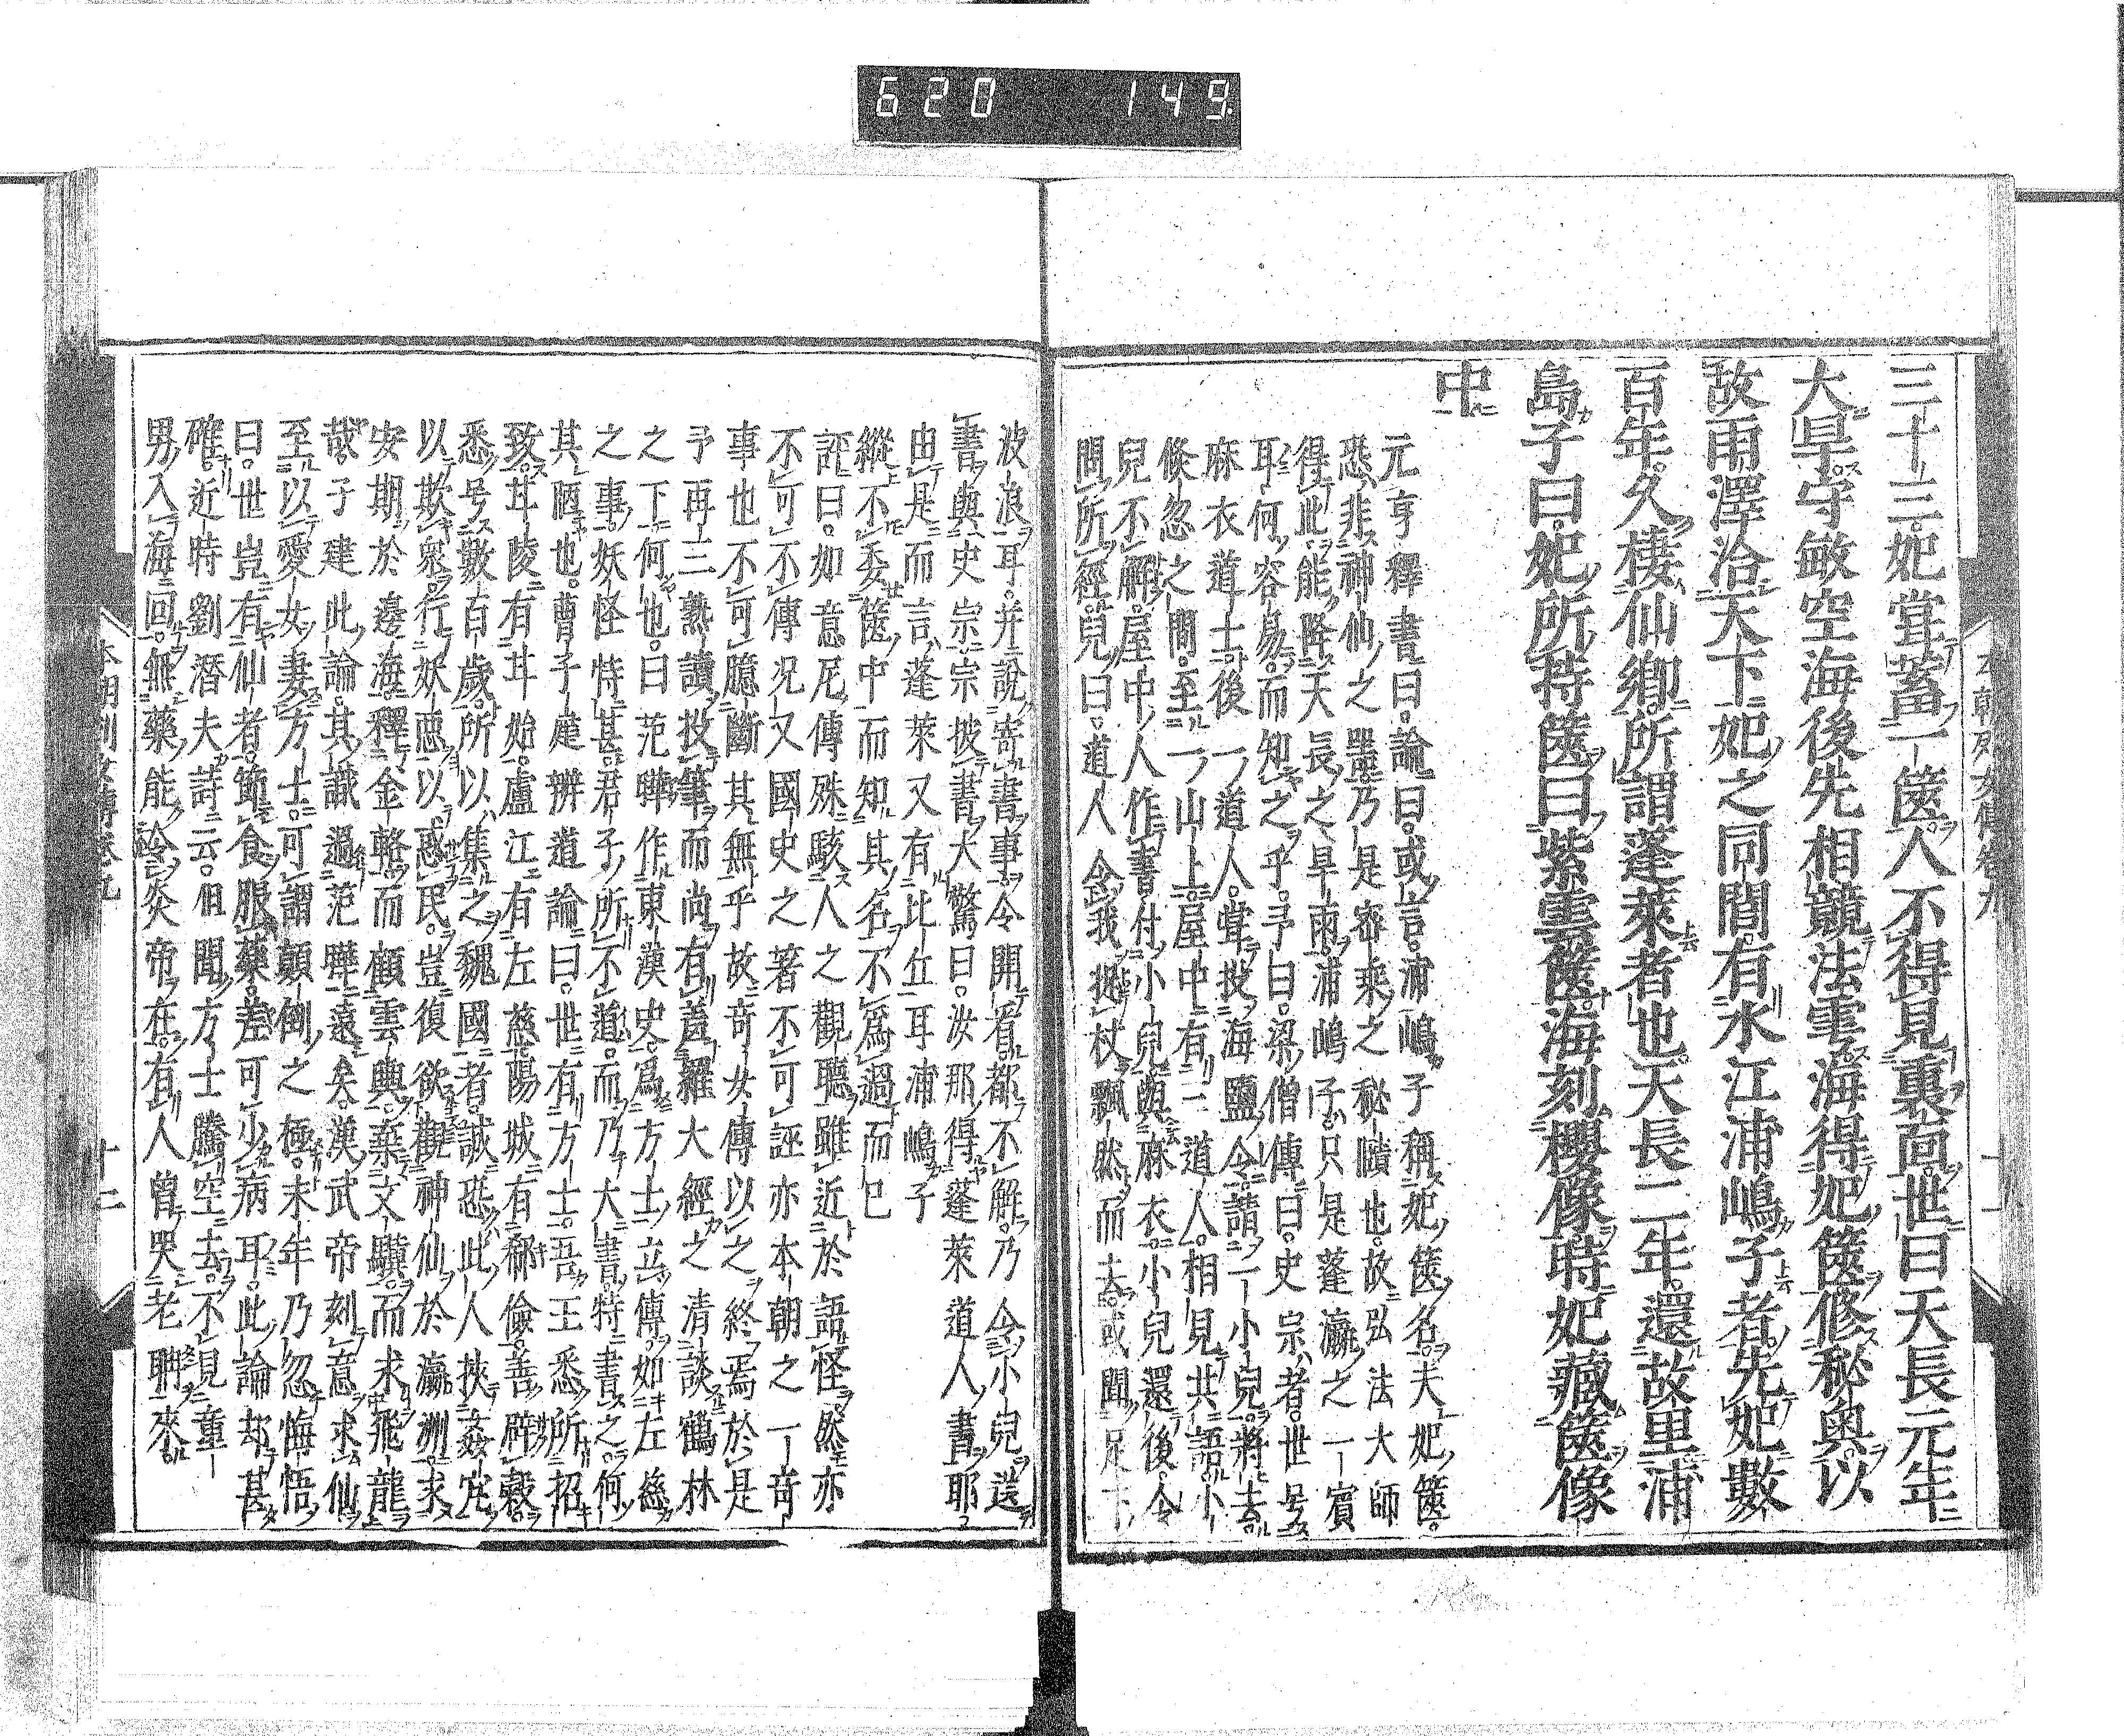 620 149
三十三妃甞蓄一篋人不得見裏靣世曰天長元年
大旱守敏空海後先相競法雩海得妃篋修秘奥以
故雨澤洽天下妃之同閭有水江浦嶋子者先妃數
百年久棲仙鄉所謂蓬萊者也天長二年還故里浦
島子曰妃所持篋曰紫雲篋海刻櫻像時妃藏篋像
中
元亨釋書曰論曰或言浦嶋子稱妃篋名夫妃篋
恐非神仙之噐乃是宻乘之秘賾也故弘法大師
得此能降天長之旱雨浦嶋子只是蓬瀛之一賓
耳何容易而知之乎予曰梁僧傳曰史宗者世号
麻衣道士後一道人甞投海鹽令請一小兒將去
倐忽之間至一山上屋中有三道人相見共語小
兒不解屋中人作書付小兒與麻衣小兒還後令
問所經兒曰道人令我捉杖飄然而去或聞足下
波浪耳并說寄書事令開看都不解乃令小兒送
書與史宗宗披書大驚曰汝那得蓬萊道人書耶
由是而言蓬萊又有比丘耳浦嶋子
縱不委篋中而知其名不爲過而已
評曰如意尼傳殊駭人之觀聽雖近於語怪然亦
不可不傳况又國史之著不可誣亦本朝之一奇
事也不可臆斷其無乎故奇女傳以之終焉於是
予再三熟讀投筆而尚有蓋羅大經之清談鶴林
之下何也曰范曄作東漢史爲方士立傳如左慈
之事妖怪恃甚君子所不道而乃大書特書之何
其陋也曹子建辨道論曰世有方士吾王悉所招
致甘陵有甘始盧江有左慈陽城有郗儉善辟穀
悉号數百歲所以集之魏國者誠恐此人挾姦宄
以欺衆行妖慝以惑民豈復欲觀神仙於瀛洲求
安期於邊海釋金輅而顧雲輿棄文驥而求飛龍
哉子建此論其識過范曄遠矣漢武帝刻意求仙
至以愛女妻方士可謂顛倒之極末年乃忽悔悟
曰世豈有仙者節食服藥差可少病耳此論却甚
確近時劉潛夫詩云但聞方士騰空去不見童
男入海回無藥能令炎帝在有人曾哭老聃來
本朝列女傳卷九
十二